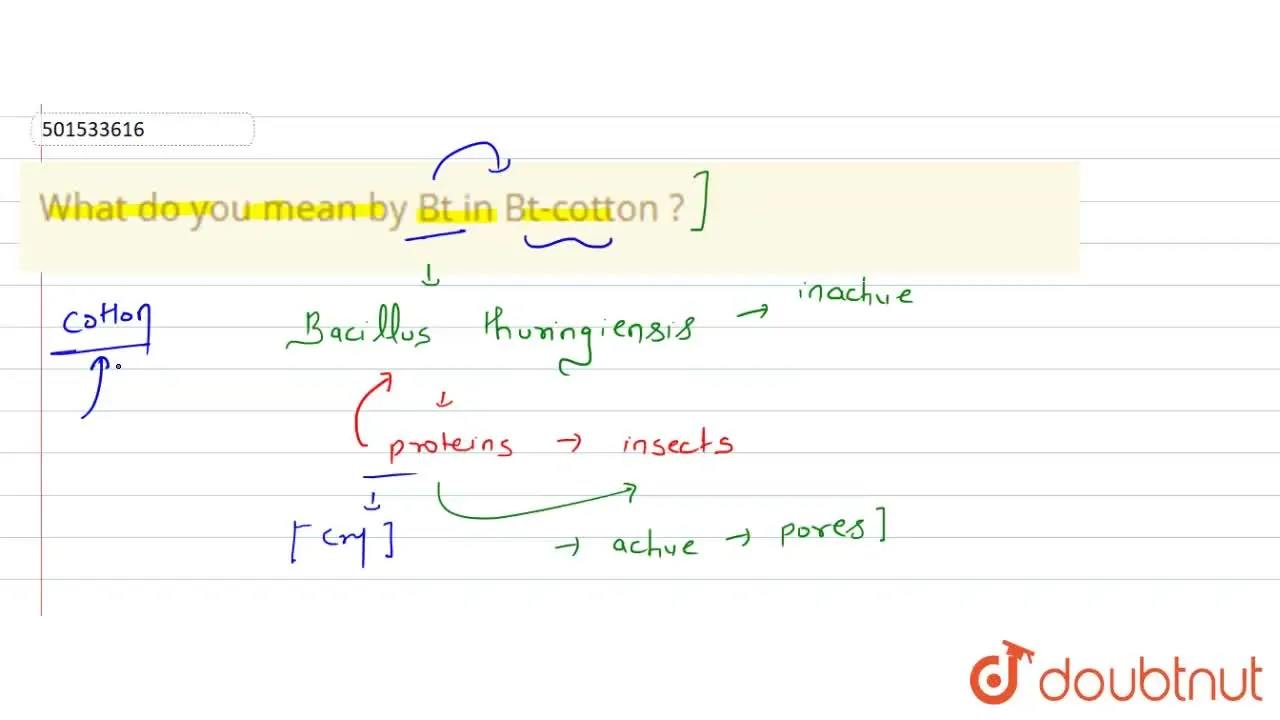 501533616
What do you mean by Bt in Bt-cotton ? ]
inactive
cotton
Bacillus thuringiensis →
↓
proteins → insects
↓
[ cry ]
→ active → pores ]
doubtnut